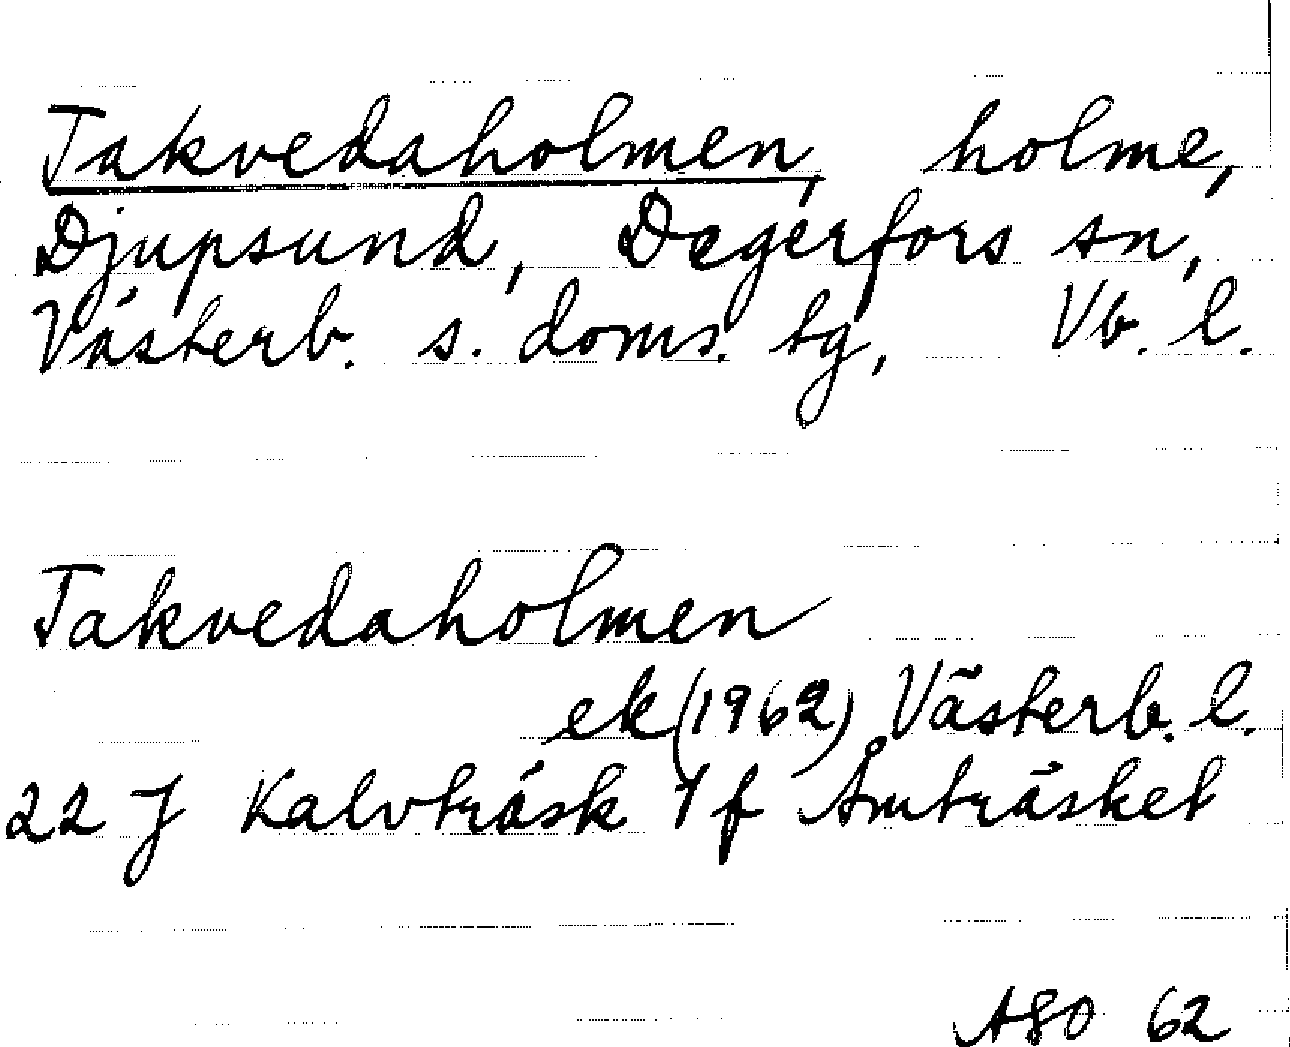 Takvedaholmen, holme,
Djupsund, Degerfors sn,
Västerb. s. doms. tg, Vb. l.
Takvedaholmen
ek (1962) Västerb. l.
22 J Kalvträsk 1 f Åmträsket
ASO 62